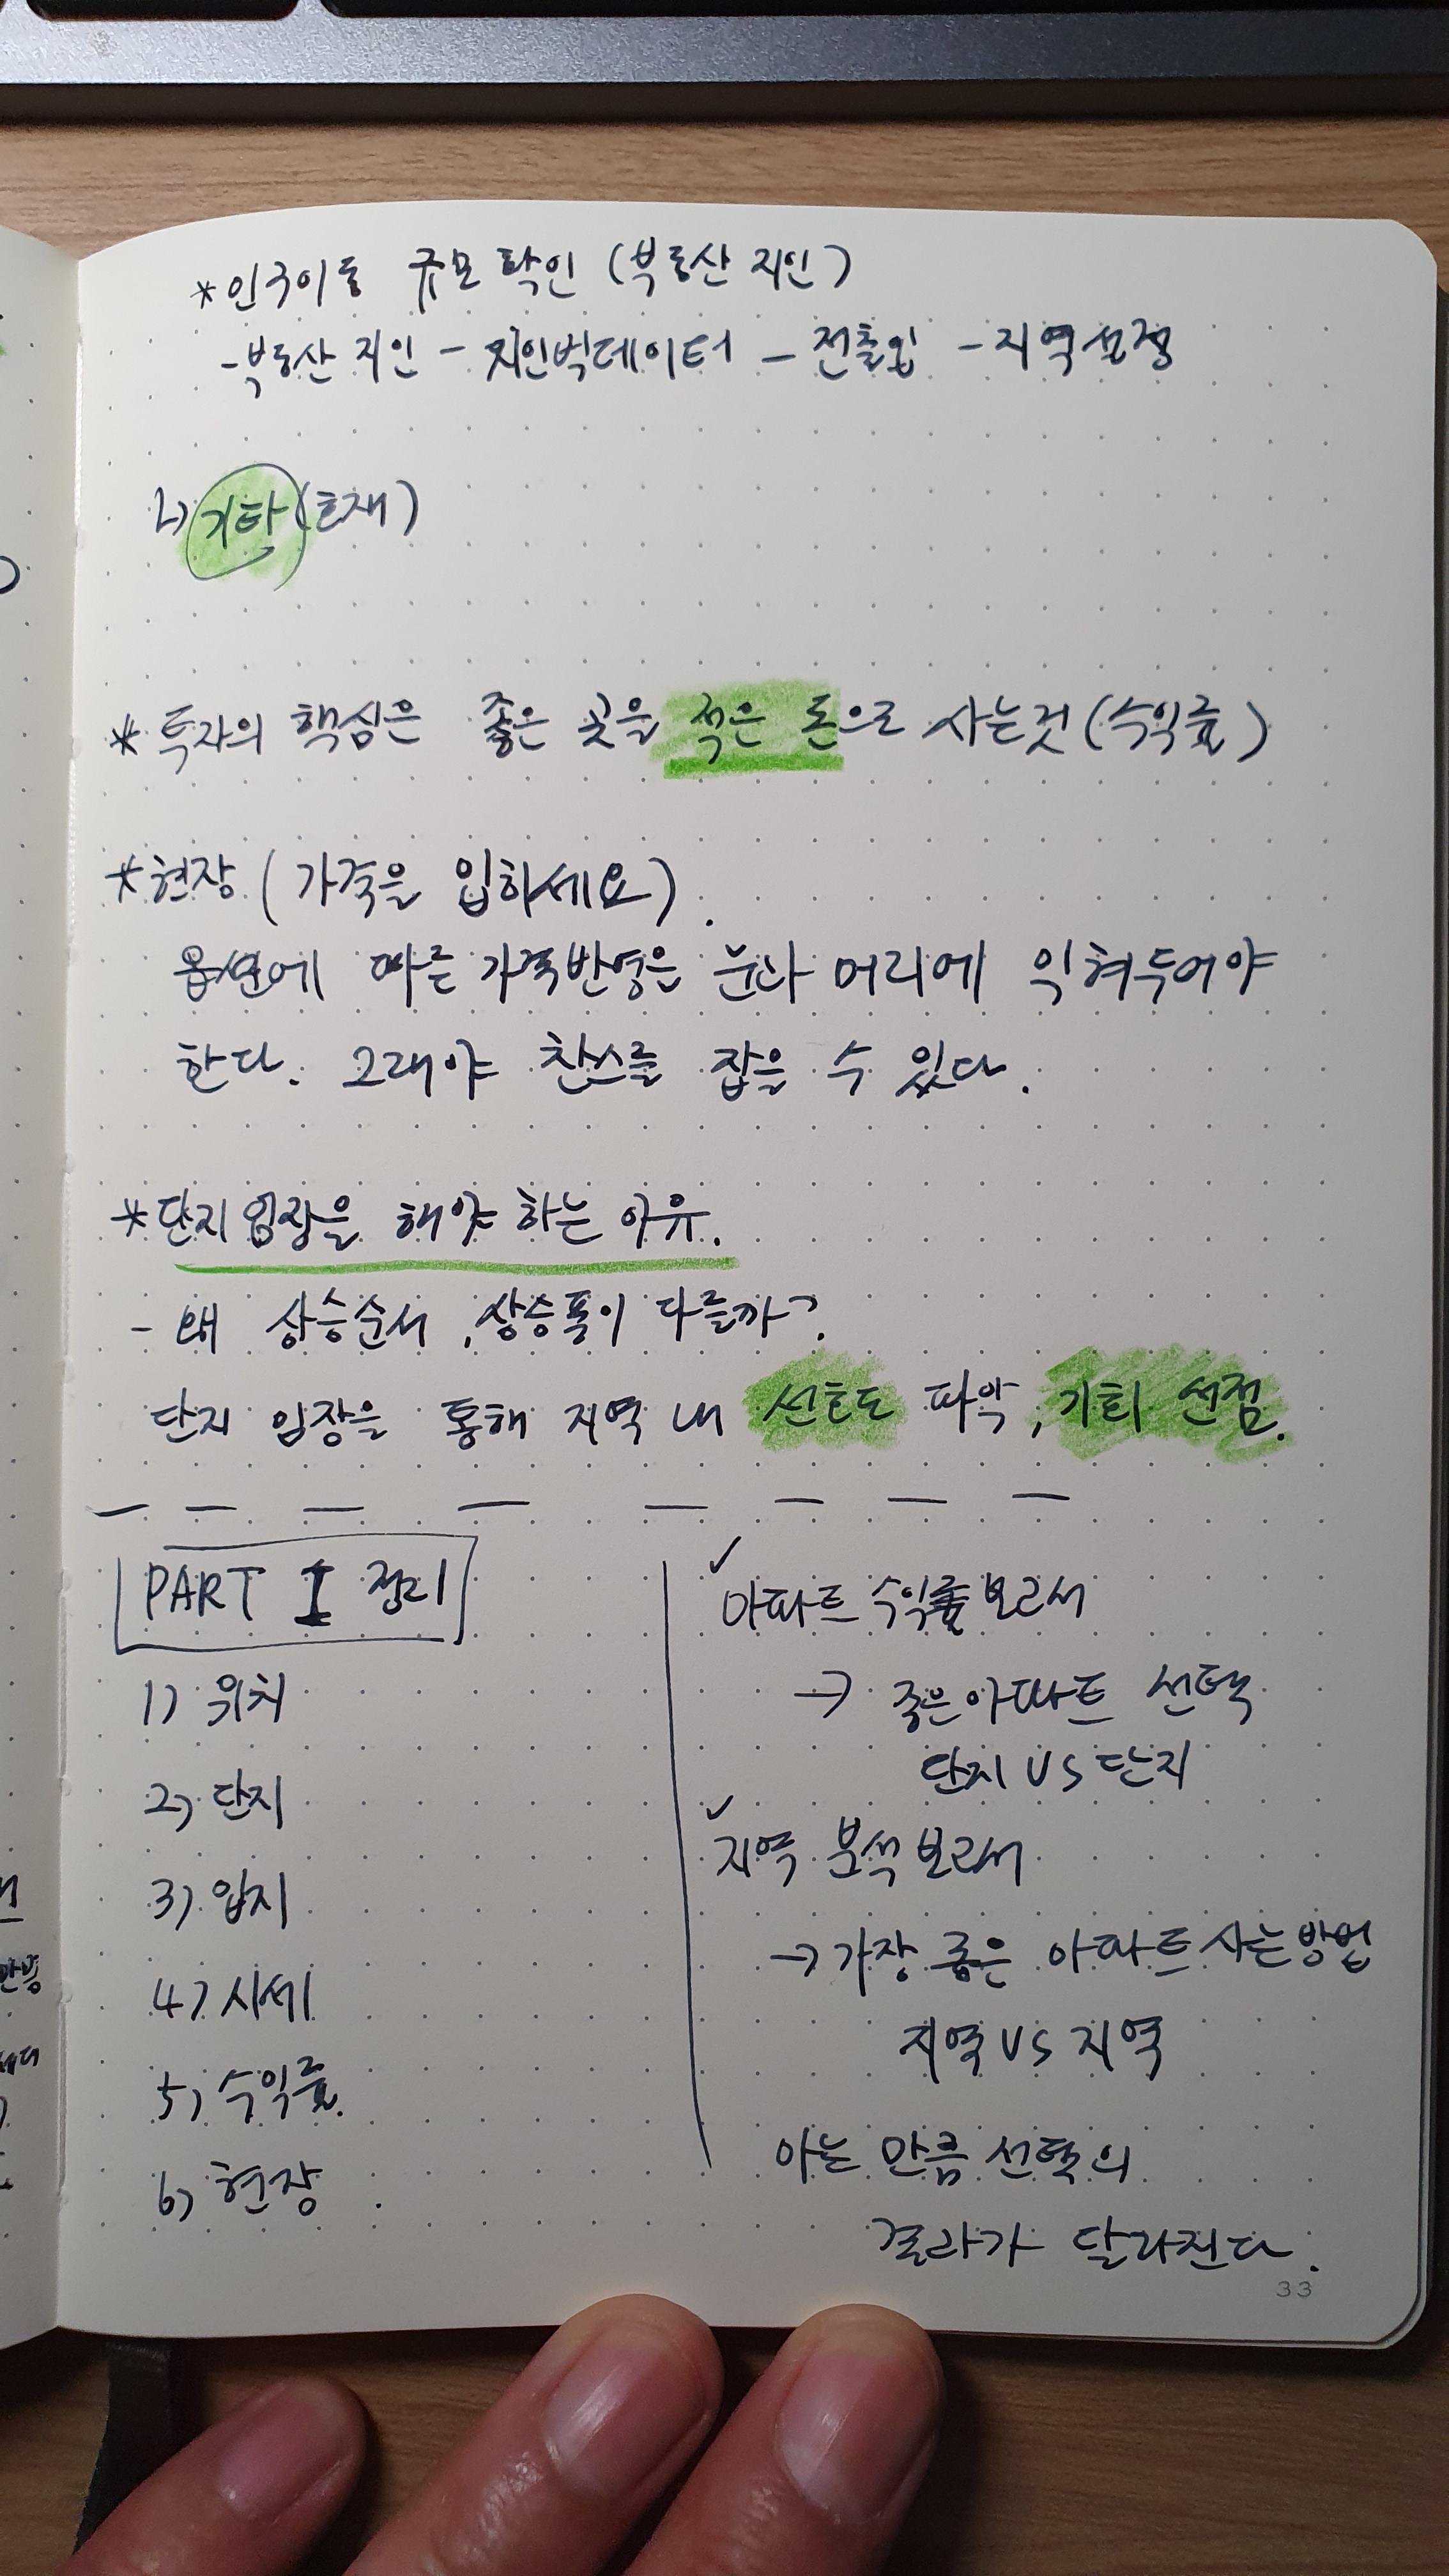 *인구이동 규모 확인 (부동산 지인)
-부동산 지인 - 지인빅데이터 - 전출입 - 지역선정
기타(호재)
* 투자의 핵심은 좋은 곳을 적은 돈으로 사는것 (수익률)
*현장 (가격을 입하세요).
옵션에 따른 가격반영은 눈과 머리에 익혀두어야
한다. 그래야 찬스를 잡을 수 있다.
*단지임장을 해야 하는 이유.
- 왜 상승순서, 상승폭이 다를까?
단지 임장을 통해 지역 내 선호도 파악, 기회 선점.
PART I 정리
1) 위치
2) 단지
3) 입지
4) 시세
5) 수익률.
6) 현장
✓
아파트 수익률 보고서
→ 좋은아파트 선택
단지 VS 단지
✓
지역 분석 보고서
→ 가장 좋은 아파트 사는방법
지역 VS 지역
아는 만큼 선택의
결과가 달라진다.
33